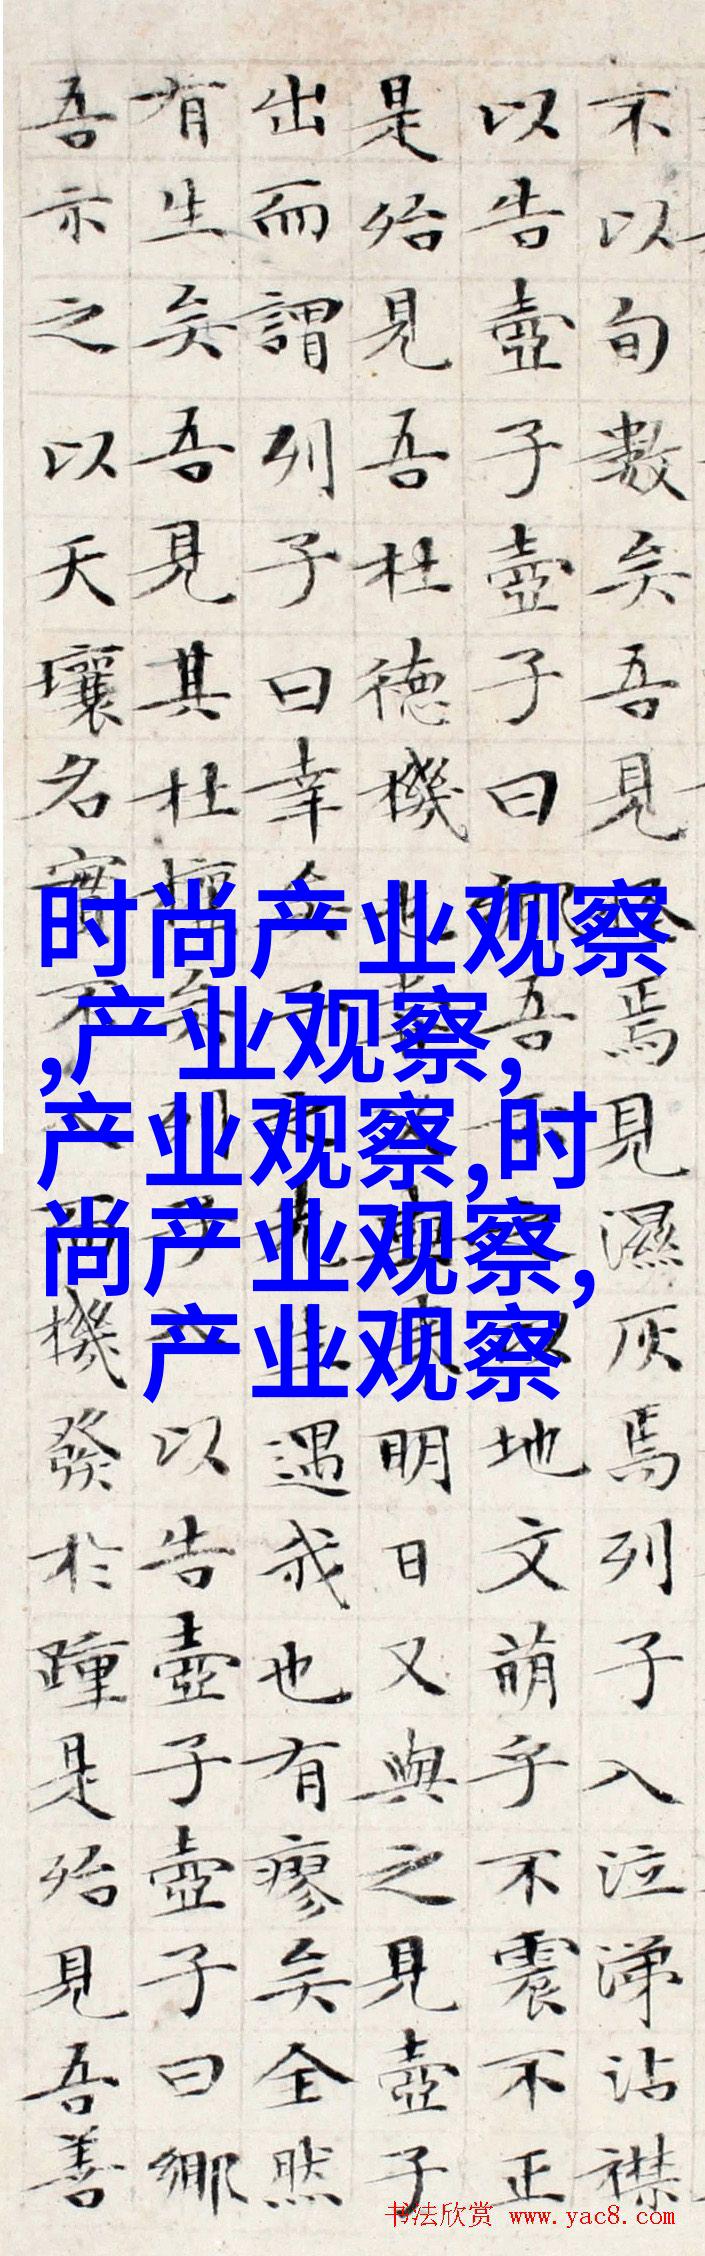 不以旬數矣吾見焉見濕灰焉列子入泣涕沾襟
以告壺子壺子曰鄉吾示地文萌乎不震不正
是殆見吾杜德機也明日又與之見壺子
出而謂列子曰幸矣子遇我也有瘳矣全然
有生矣吾見其杜權矣列子入以告壺子壺子曰鄉
吾示之以天壤名實不機發於踵是殆見吾善
时尚产业观察
,产业观察,
产业观察,时
尚产业观察,
产业观察
书法欣赏 www.yac8.com